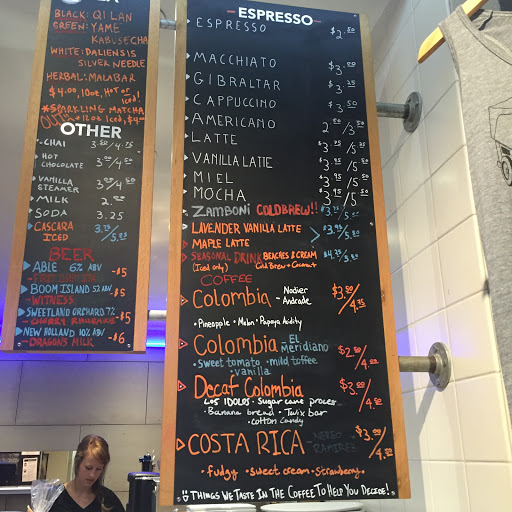 BLACK: QI LAN
GREEN: YAME
KABUSECHA
WHITE: DALIENSIS
SILVER NEEDLE
HERBAL: MALABAR
$4.00, 10oz, HOT OR
iced!
*SPARKLING MATCHA
OUT!! 12oz iced, $4
OTHER
CHAI 3.50/4.75
HOT
CHOCOLATE 3.00/4.50
VANILLA
STEAMER 3.00/4.00
MILK 2.00
SODA 3.25
CASCARA
ICED 3.75/5.25
BEER
ABLE 6% ABV -$5
BOOM ISLAND 5.2 ABV -$5
WITNESS
SWEETLAND ORCHARD 7.2 -$5
CHERRY RHUBARB
NEW HOLLAND 10% ABV -$6
DRAGONS MILK
ESPRESSO
ESPRESSO $2.50
MACCHIATO $3.00
GIBRALTAR $3.25
CAPPUCCINO $3.50
AMERICANO 2.50/3.50
LATTE $3.75/5.25
VANILLA LATTE $3.95/5.50
MIEL $3.95/5.50
MOCHA $3.95/5.50
ZAMBONI COLD BREW!! $3.75/5.00
LAVENDER VANILLA LATTE
MAPLE LATTE > $3.95/5.50
SEASONAL DRINK BEACHES & CREAM $4.75/5.50
(Iced only) Cold Brew + Coconut
COFFEE
Colombia - Nodier
Andrade $3.50/4.75
• Pineapple • Melon • Papaya Acidity
Colombia - EL
MERIDIANO $2.50/4.00
• sweet tomato • mild toffee
• vanilla
Decaf Colombia $3.00/4.50
LOS IDOLOS • Sugar cane process
• Banana bread • Twix bar
• cotton candy
COSTA RICA - NEREO
RAMIREZ $3.00/4.50
• fudgy • sweet cream • strawberry
THINGS WE TASTE IN THE COFFEE TO HELP YOU DECIDE!